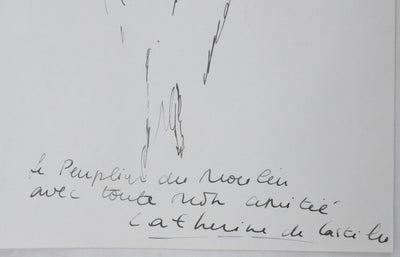 Le Peuplier du Moulin
avec toute mon amitié
Catherine de Castilho